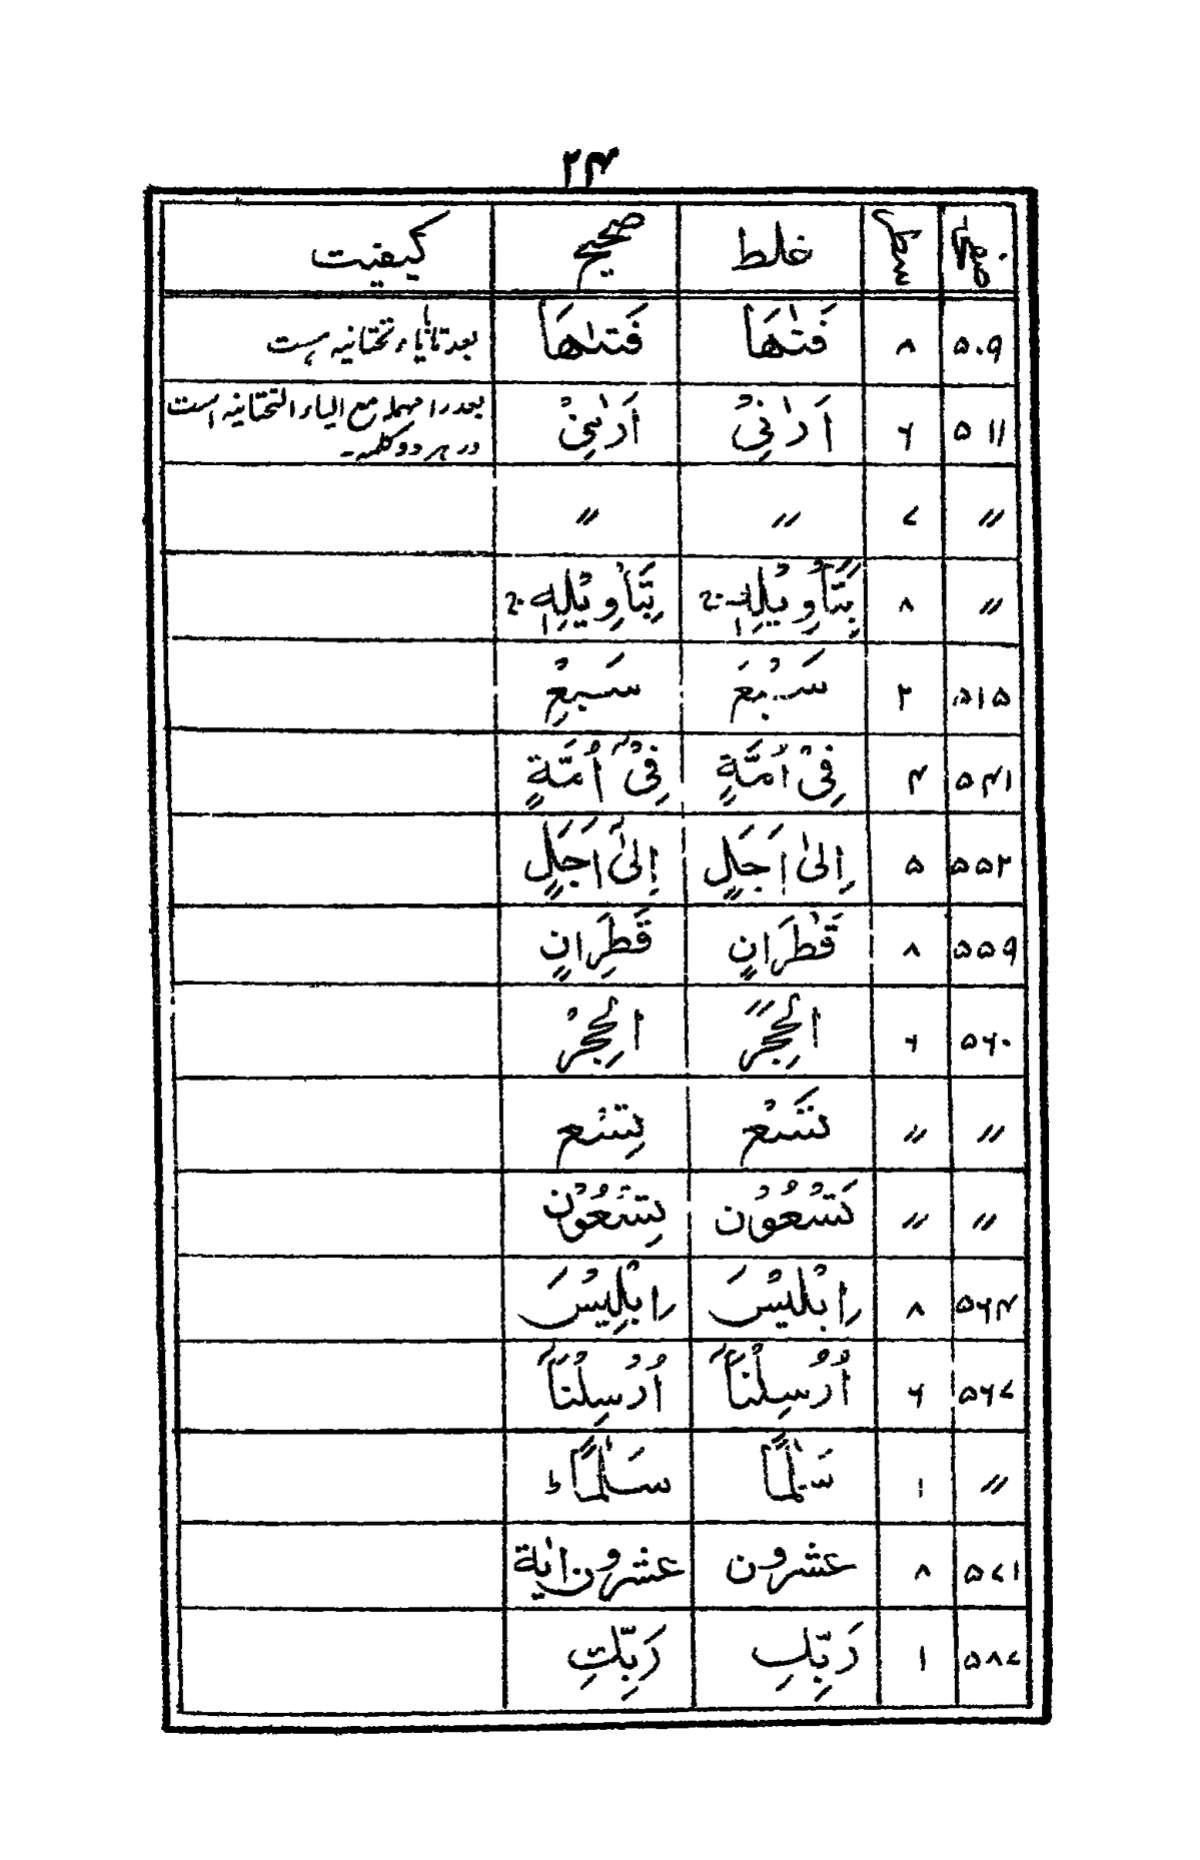 ۲۴
صفحہ سطر غلط صحیح کیفیت
۵۰۹ ۸ فَتٰهَا فَتٮٰهَا بعد تا یاء تختانیہ است
۵۱۱ ۶ اَرٰنِیْ اَرٮٰنِیْ بعد را مہملہ مع الیاء التحتانیہ است
در ہر دو کلمہ۔
〃 ۷ 〃 〃
〃 ۸ بِتَّاْوِیْلِهٖ ج بِتَاْوِیْلِهٖ ج
۵۱۵ ۲ سَبْعَ سَبْعِ
۵۴۱ ۴ فِیْ اُمَّةٍ فِیْٓ اُمَّةٍ
۵۵۲ ۵ اِلیٰ اَجَلٍ اِلیٰٓ اَجَلٍ
۵۵۹ ۸ قَطْرَانٍ قَطِرَانٍ
۵۶۰ ۶ الحِجْرً الحِجْرْ
〃 〃 تَسْع تِسْع
〃 〃 تَسْعُوْن تِسْعُوْن
۵۶۴ ۸ اِبْلیْسَ اِبْلِیْسَ
۵۶۷ ۶ اُرْسِلْنَآ اُرْسِلْنَآ
〃 ۱ سَلٰمًا سَلٰمًا ط
۵۷۱ ۸ عشرون عشرون اٰیة
۵۸۷ ۱ رَبِّكِ رَبِّكِ